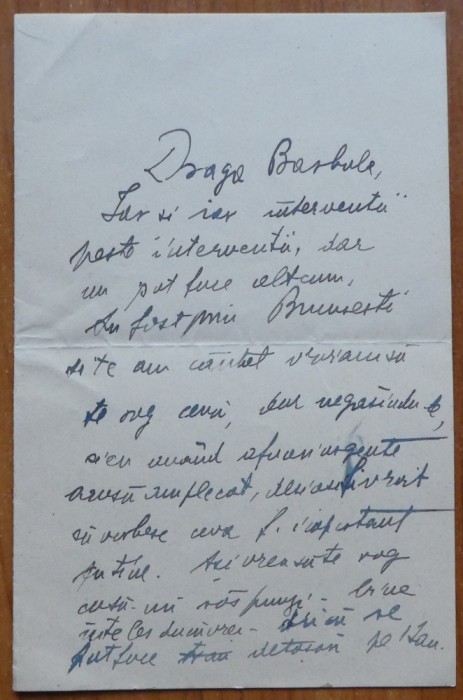 Draga Barbule,
Iar și iar intervenții
peste intervenții, dar
nu pot face altcum,
Am fost prin București
și te am căutat vroiam să
te rog ceva, dar negăsindu-te,
și eu având afaceri urgente
acasă am plecat, deși aș fi vroit
să vorbesc ceva f. important
cu tine. Azi vream să te rog
ca să-mi răspunzi - bine
înțeles dacă vrei - dacă se
pot face detașări pe 1 Ian.